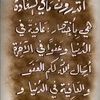 أتدرون ما هي السعادة
هي باختصار: عافية في
الدنيا وعفو في الآخرة
أسأل الله لكم العفو
والعافية في الدنيا و